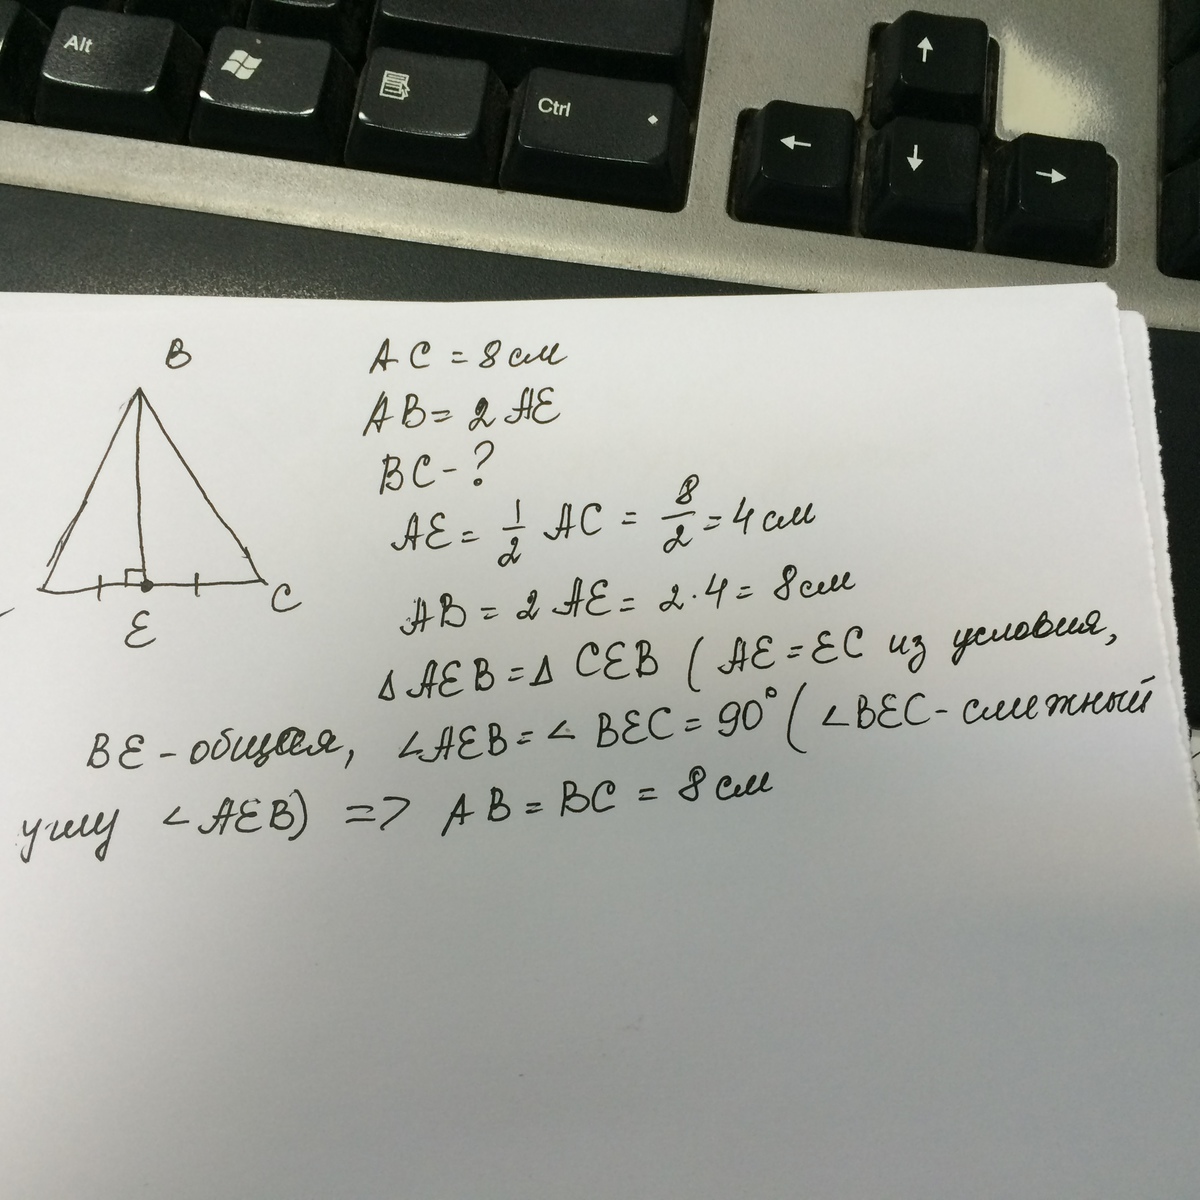 Alt
Ctrl
B
C
E
AC = 8 см
AB = 2 AE
BC - ?
AE = 1/2 AC = 8/2 = 4 см
AB = 2 AE = 2 · 4 = 8 см
Δ AEB = Δ CEB ( AE = EC из условия,
BE - общая, ∠AEB = ∠ BEC = 90° ( ∠BEC - смежный
углу ∠AEB) => AB = BC = 8 см